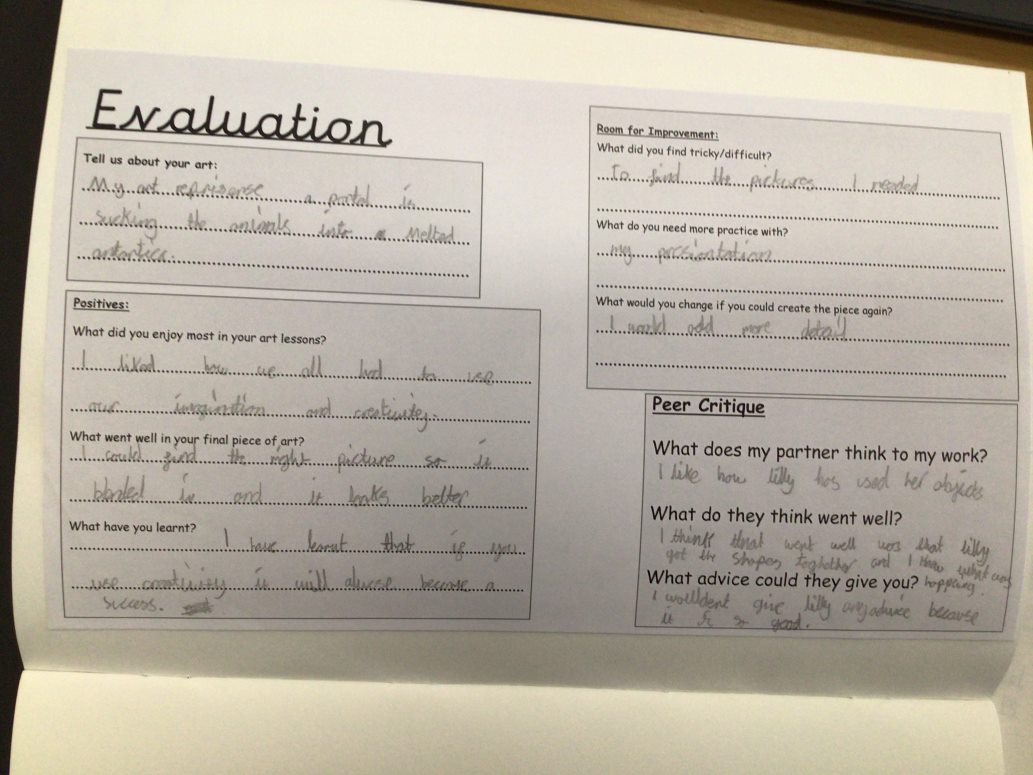 Evaluation
Tell us about your art:
My art reprisense a portal is
sucking the animals into a Melted
antartica.
Positives:
What did you enjoy most in your art lessons?
I liked how we all had to use
our imagination and creativity.
What went well in your final piece of art?
I could find the right picture so it
blended in and it looks better
What have you learnt?
I have learnt that if you
use creativity it will become a
success.
Room for Improvement:
What did you find tricky/difficult?
To find the pictures I needed
What do you need more practice with?
my
What would you change if you could create the piece again?
I would add more detail
Peer Critique
What does my partner think to my work?
I like how lilly has used her objects
What do they think went well?
I think that went well was that lilly
got the shapes toghether and I know what was
What advice could they give you? happening.
I wolldent give lilly any advice because
it is so good.